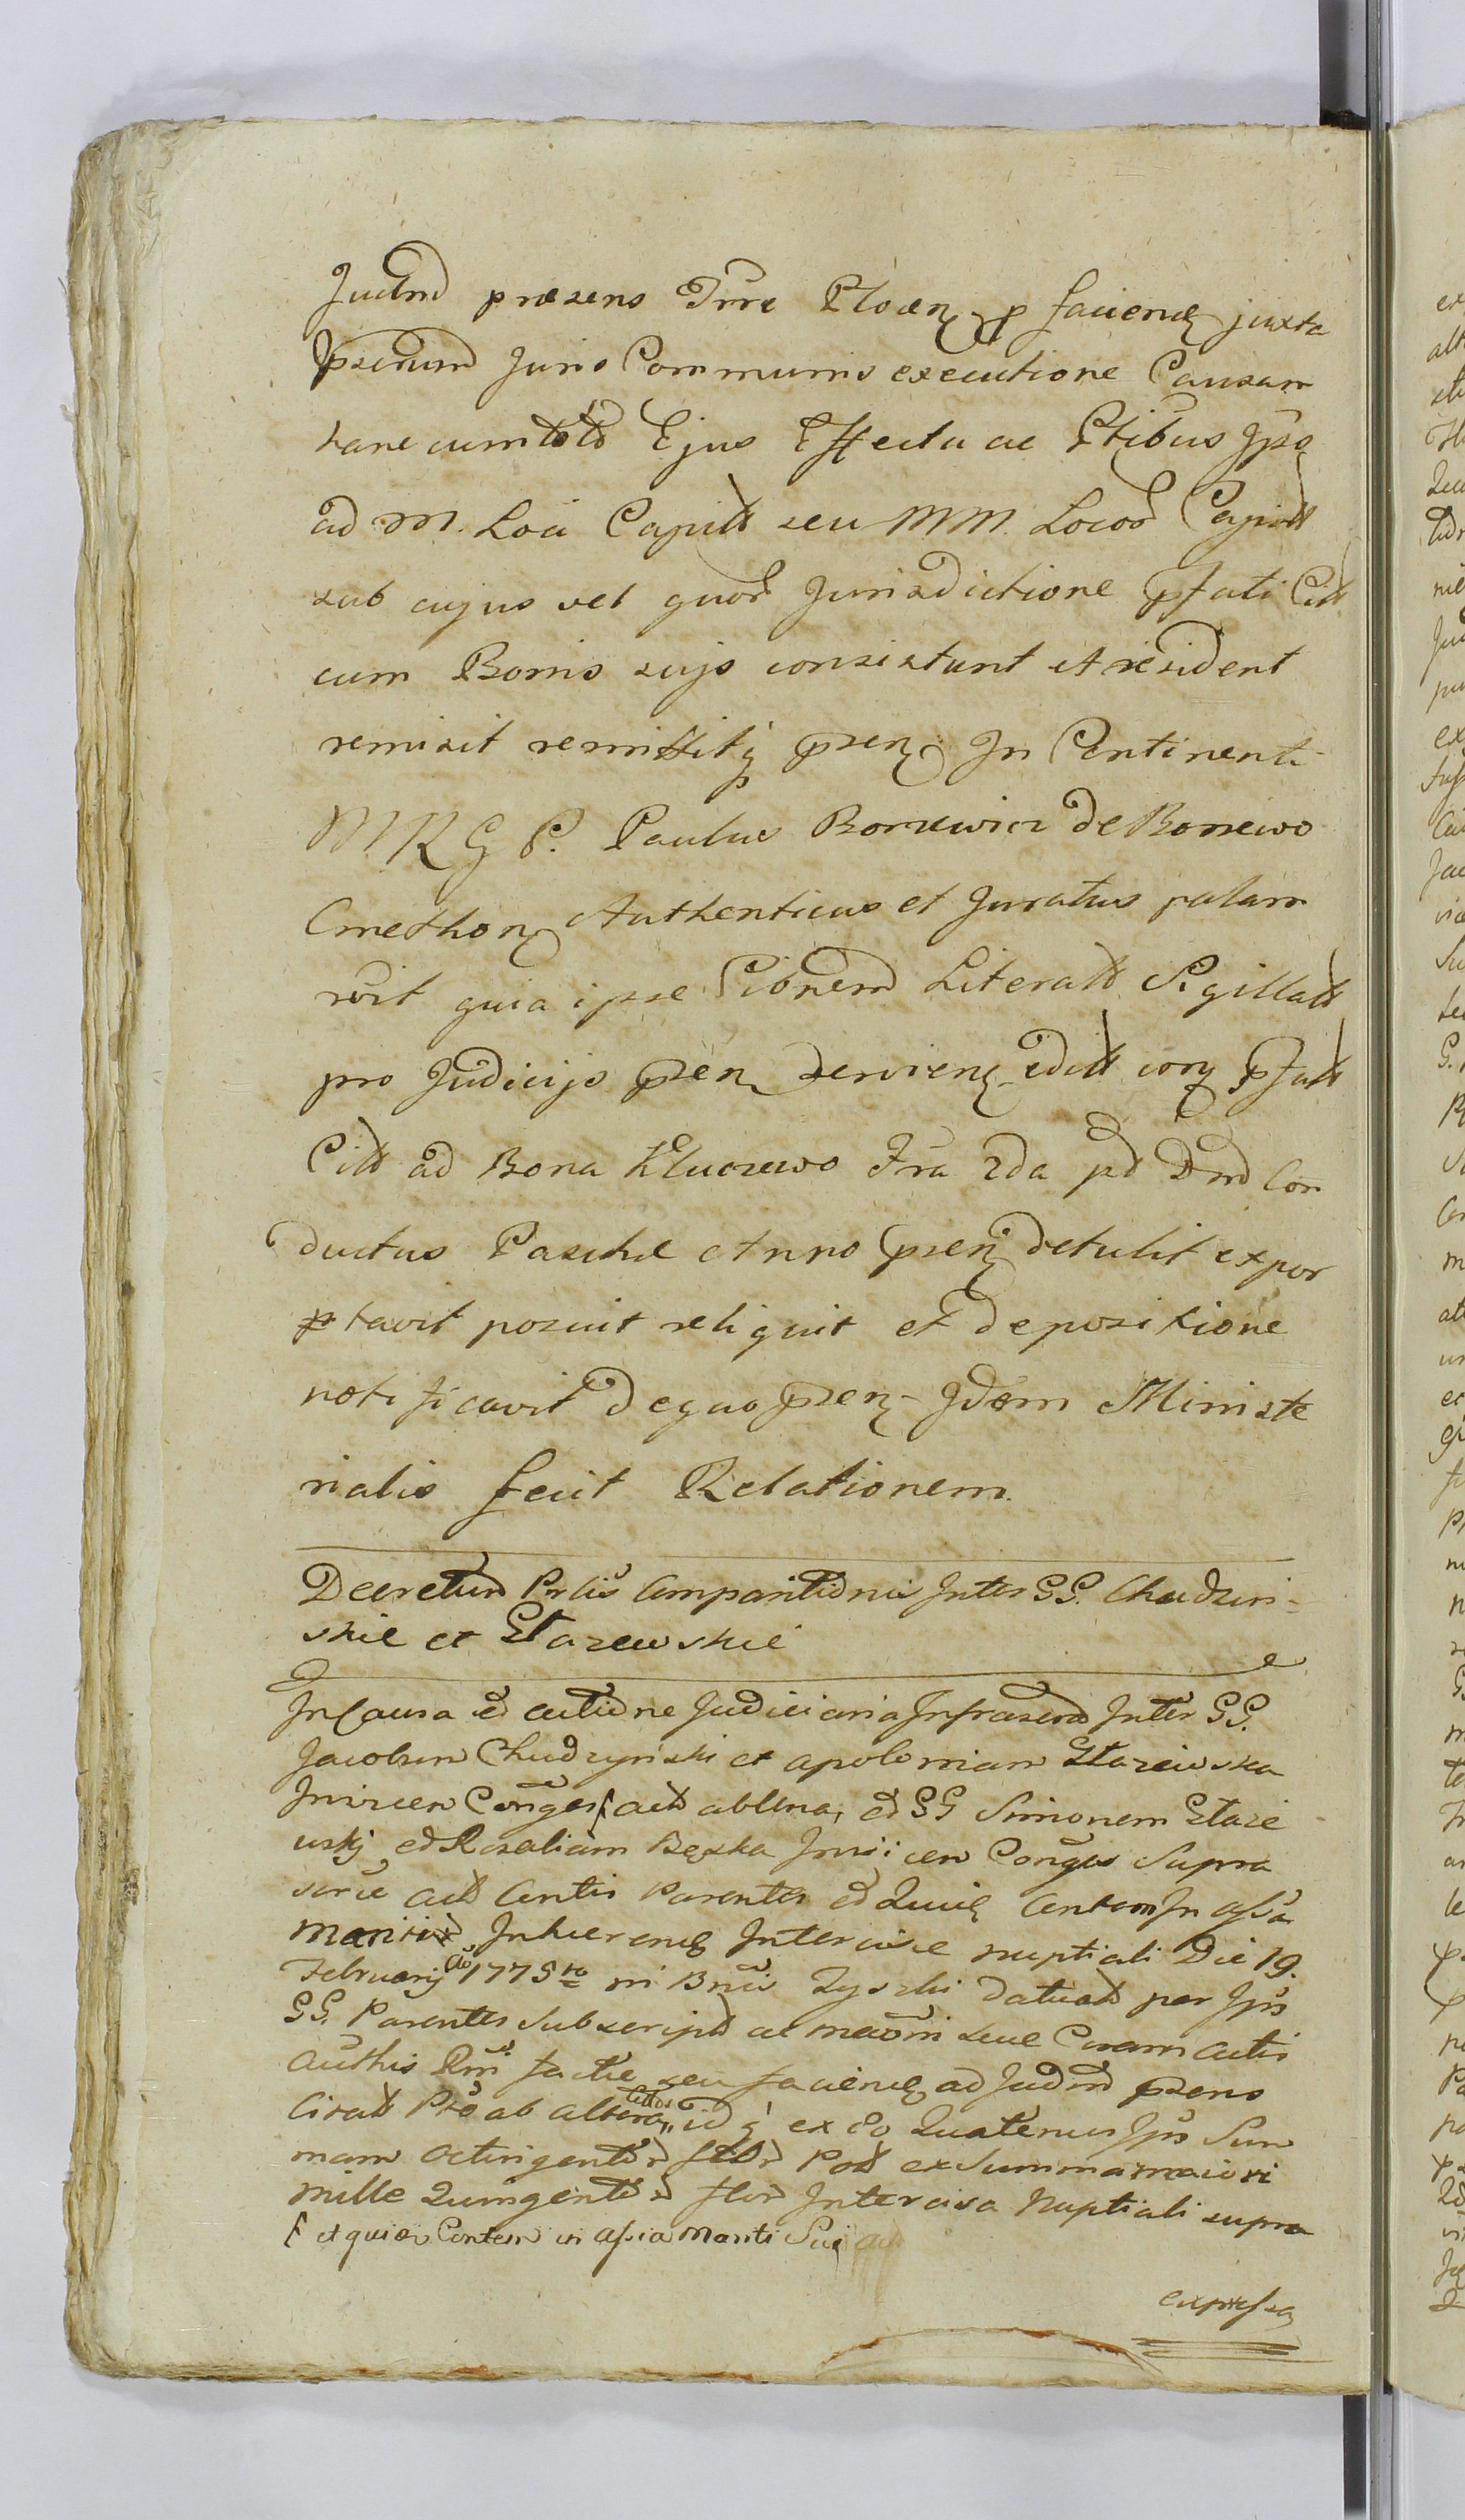 Judm præsens Trre Plocen p faciend juxta
pscriptum Juris Communis executione Causam
hanc cum toto Ejus Effectu ac Ptibus Ipso
ad M. Loci Capitt seu MM. Locor Capitt
sub cujus vel quor Jurisdictione pfati Citt
cum Bonis suis consistunt et resident
remisit remittitq psen In Continenti
M R G P. Paulus Borzewicz de Borzewo
Cmethon Authenticus et Juratus palam
rcit quia ipse Citionem Literatt Sigillatt
pro Judicijs psen servien edit pfatt
Citt ad Bona Kluczewo Fra 2da pt Dnd Con
ductus Paschæ Anno psen detulit expor
tavit posuit reliquit et depositione
notificavit de quo psen Idem Ministe
rialis fecit Relationem.
Decretum Prlis Comparitionis Inter GG. Chudzin=
skie et Starewskie
In Causa et actione Judiciaria Infrascr Inter GG.
Jacobum Chudzynski et Apolonian Starewska
Invicem Conges act ab una, et GG Simonem Stare
wskj et Rosaliam Bęska Invicem Conges Supra
scræ act Contis Parentes et Quie Contem In assia
Mariti Inhæren Intercisæ nuptiali Die 19.
February 1775to in Bnis Zyski datuatt per Ips
GG. Parentes subscript ac suæ Coram actis
Authis Rm factæ seu faciend ad Judm psens
Citatt Pte ab altera idq ex eo Quatenus Ips Sum
mam octingent flor Pol ex Summa maiori
mille Quingent flor Intercisa Nuptiali supra
et quiæ Contem in assia Mariti Sui
expressa